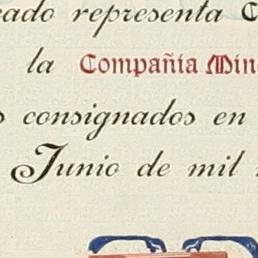 ado representa
la Compañia Min
consignados en
Junio de mil